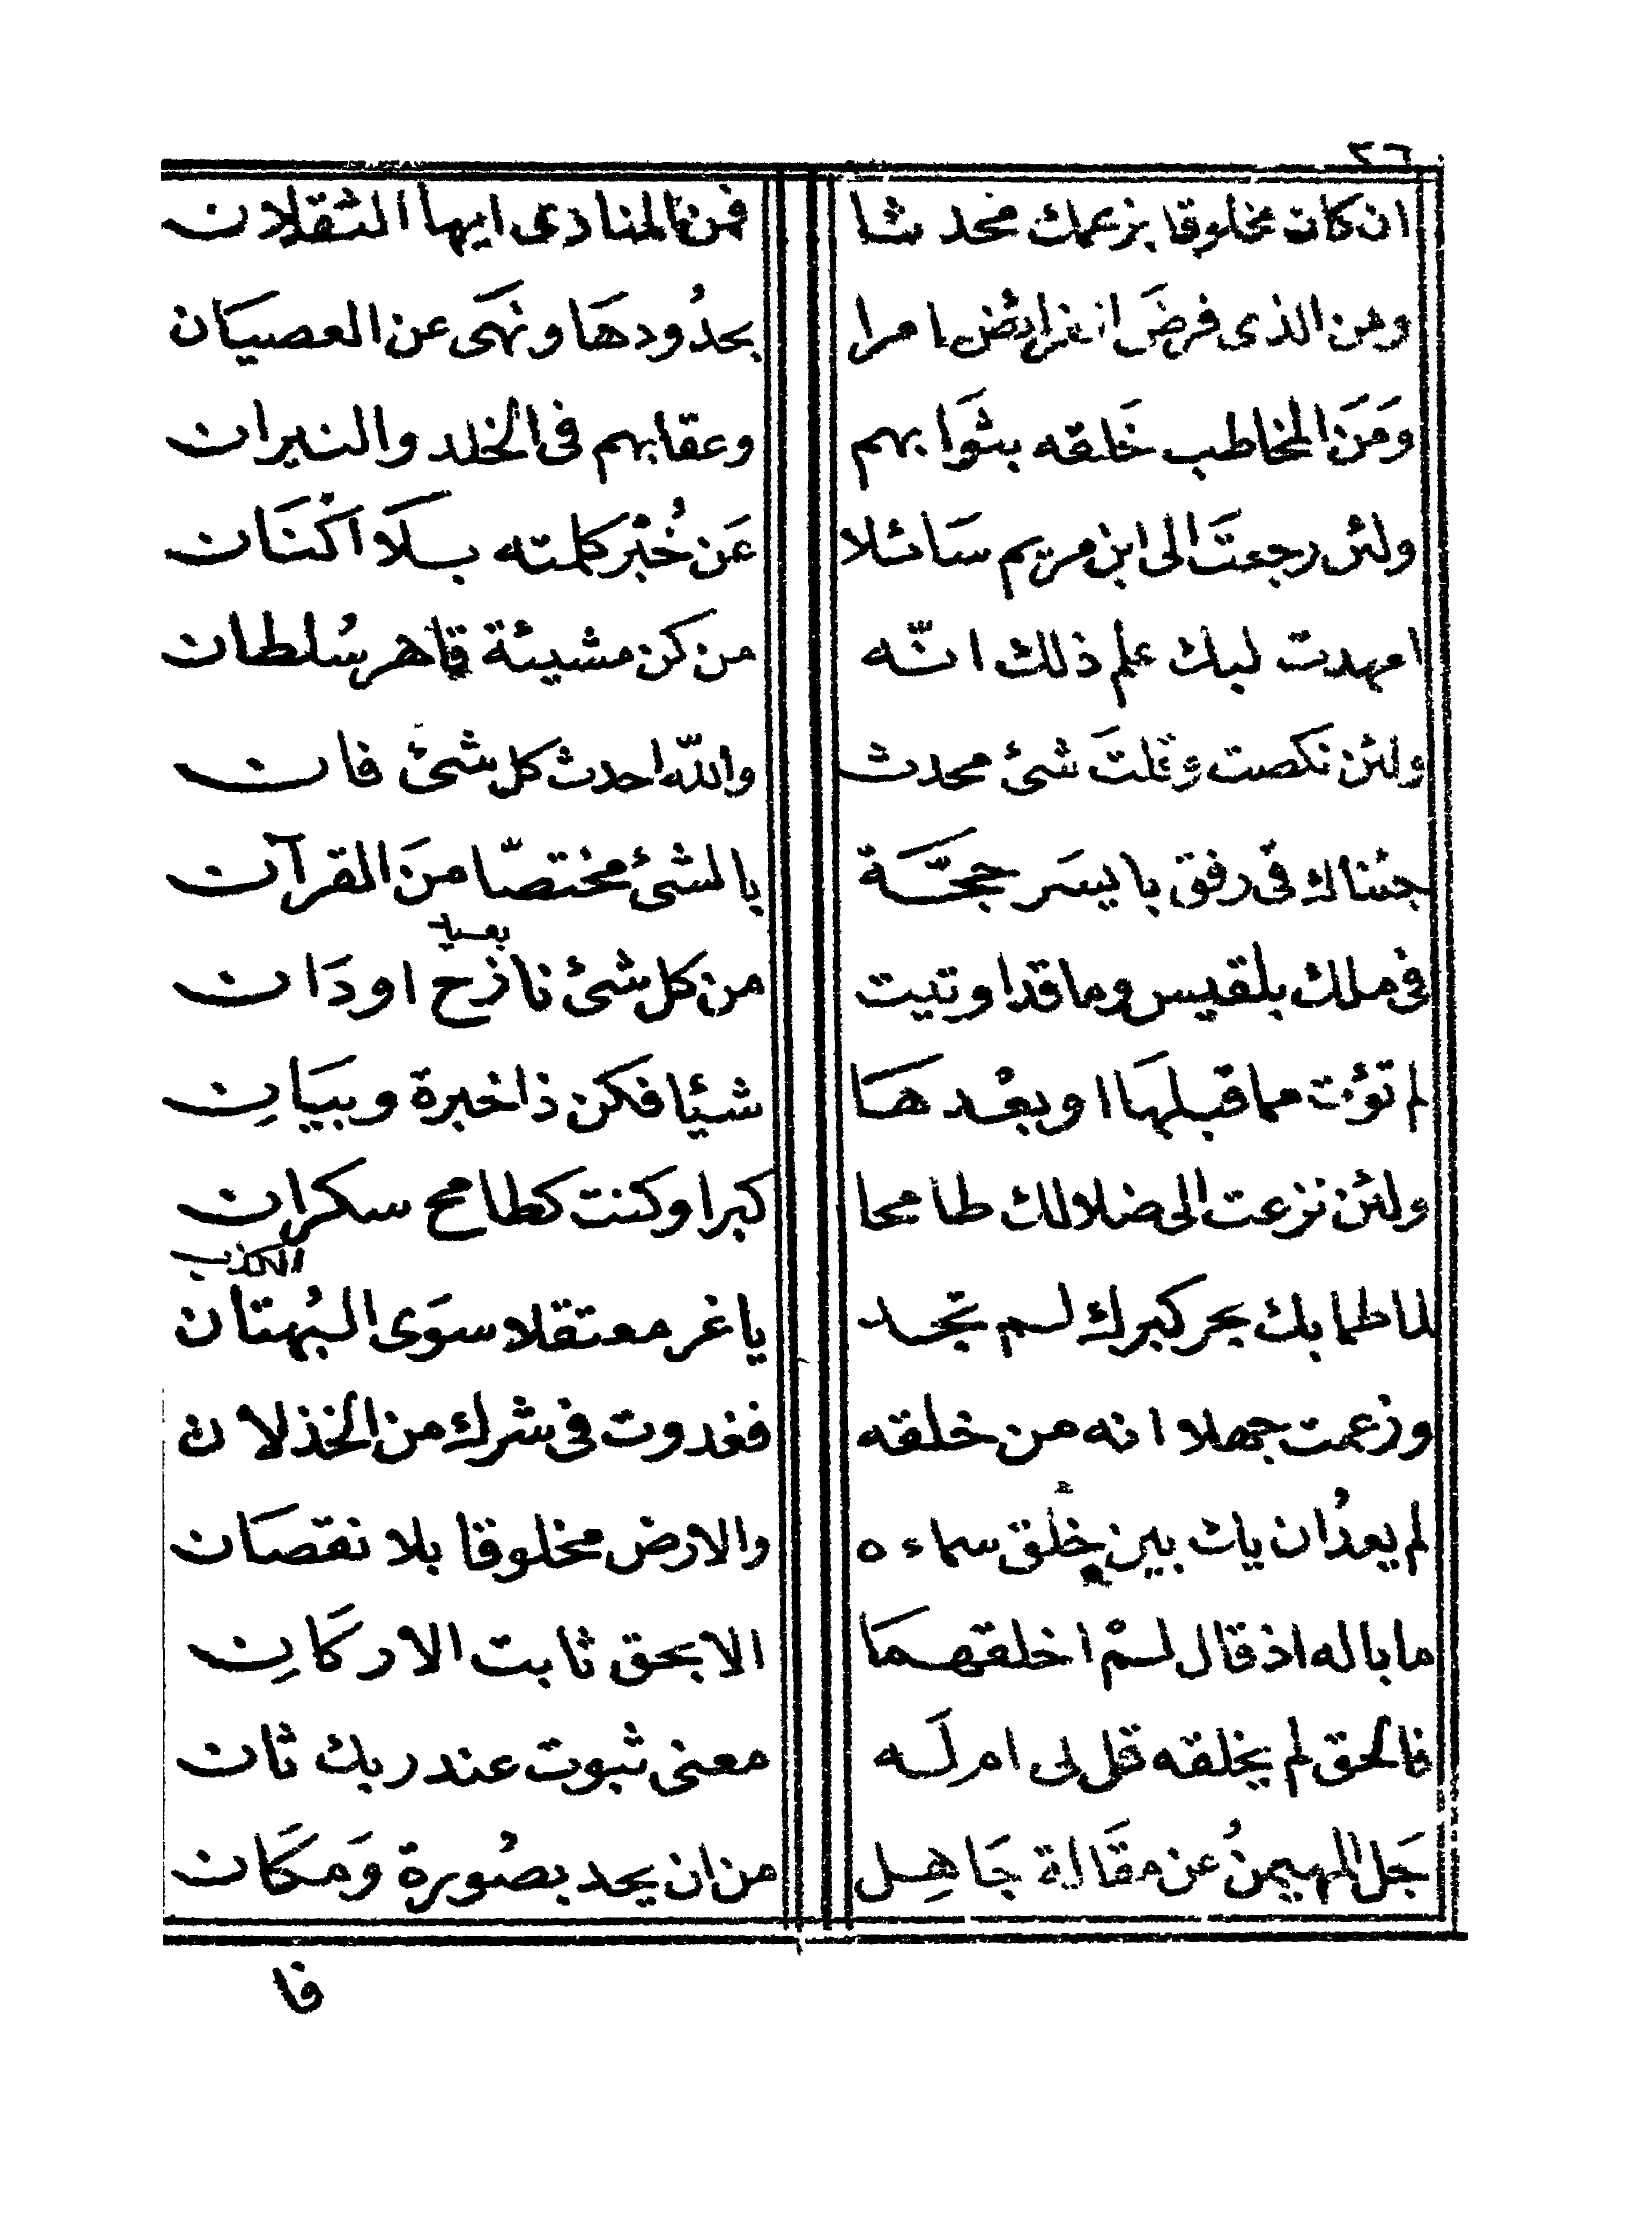 ٢٦
ان كان مخلوقا بزعمك محدثا فمن المنادى ايها الثقلان
ومن الذى فرضَ الفرائض امرا بحدُودهَا ونهَى عن العصيَان
وَمَنَ المخاطب خَلقه بثوَابهم وعقابهم فى الخلد والنيران
ولئن رجعتَ الى ابن مريم سَائلا عَن خُبْر كلمته بلَا اكْنَان
امهدت لبك علم ذلك انّه من كن مشيئة قاهر سُلطان
ولئن نكصت وقلتَ شئ محدث والله احدث كل شئ فان
جئناك فى رفق بايسَر حجّة يا لشئ مختصّا منَ القرآن
فى ملك بلقيس وما قد اوتيت من كل شئ نازح اودَان
بعيد
لم تؤت مما قبلهَا او بعْدهَا شيئا فكن ذا خبرة وبيَانِ
ولئن نزعت الى ضلالك طامحا كبرا وكنت كطامح سكران
لما طما بك بحر كبرك لم تجد يا غر معتقلا سوَى البُهتان
الكذب
وزعمت جهلا انه من خلقه فغدوت فى شرك من الخذلان
لم يعدُ ان يك بين خلق سماءه والارض مخلوقا بلا نقصَان
ما باله اذ قال لمْ اخلقهمَا الا بحق ثابت الاركَانِ
فالحق لم يخلقه قل لى ام لَه معنى ثبوت عند ربك ثان
جَل المهيمنُ عن مقَالة جَاهِل من ان يحد بصُورة وَمكَان
فا